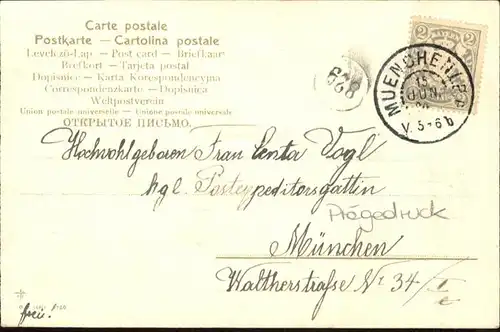 Carte postale
Postkarte — Cartolina postale
Levelező-Lap — Post card — Briefkaart
Brefkort — Tarjeta postal
Dopisnice — Karta Korespondencyjna
Correspondenzkarte — Dopisnica
Weltpostverein
Union postale universelle — Unione postale universale
ОТКРЫТОЕ ПИСЬМО.
2
2
MUENCHEN
JUN.
V. 5-6 b
Hochwohlgeboren Frau Centa Vogl
kgl. Postexpeditorsgattin
Prägedruck
München
Waltherstraße Nr 34/I
frei!